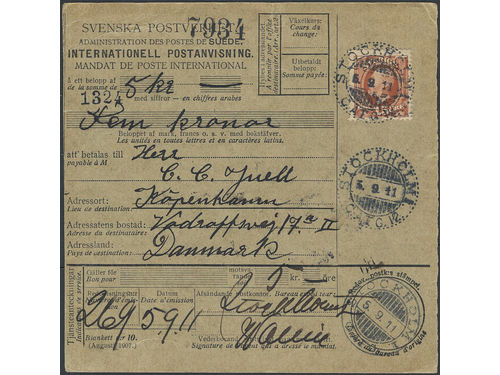 SVENSKA POSTVERKET
7934
ADMINISTRATION DES POSTES DE SUÈDE.
INTERNATIONELL POSTANVISNING.
MANDAT DE POSTE INTERNATIONAL
Växelkurs:
Cours de
change:
Utbetalt
belopp:
Somme payée:
à ett belopp af
de la somme de
5 kr
1324
med siffror — en chiffres arabes
Fem kronor
Beloppet af mark, francs o. s. v. med bokstäfver.
Les unités en toutes lettres et en caractères latins.
att betalas till
payable à M
Herr
C. C. Juell
Adressort:
Lieu de destination:
Köpenhamn
Adressatens bostad:
Adresse du destinataire:
Vodroffsvej 17a II
Adressland:
Pays de destination:
Danmark
STOCKHOLM 1
5.9.11
STOCKHOLM 1
5.9.11
Tjänsteanteckningar
Indications de service.
Gäller för
Bon pour
motsv.
kr. öre
Redovisningsnr
Utgifningsdag
Date d'émission
Afsändande postkontor. Bureau expéditeur:
269 5.9.11
Stockholm 1
Blankett n:r 10.
(Augusti 1907.)
Signature de l'agent qui a dressé le mandat.
STOCKHOLM 1
5.9.11
Timbre du bureau d'origine